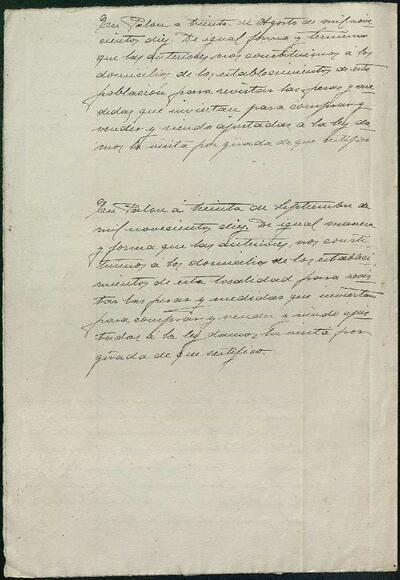 En Palou a treinta de Agosto de mil nove
cientos diez. De igual forma y términos
que las anteriores, nos constituimos a los
domicilios de los establecimientos de esta
población para revistar las pesas y me
didas que inviertan para comprar y
vender y siendo ajustadas a la ley da
mos la visita por girada de que certifico
En Palou á treinta de Septiembre de
mil novecientos diez. De igual manera
y forma que las anteriores, nos consti
tuimos a los domicilios de los estableci
mientos de esta localidad para revis
tar las pesas y medidas que inviertan
para comprar y vender y siendo ajus
tadas a la ley damos la visita por
girada de que certifico.